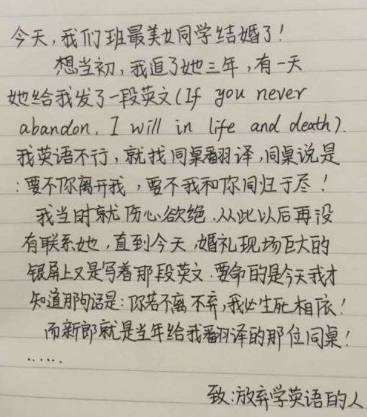 今天,我们班最美女同学结婚了!
想当初,我追了她三年,有一天
她给我发了一段英文(If you never
abandon, I will in life and death).
我英语不行,就找同桌翻译,同桌说是
:要不你离开我,要不我和你同归于尽!
我当时就伤心欲绝.从此以后再没
有联系她,直到今天,婚礼现场巨大的
银屏上又是写着那段英文.要命的是今天我才
知道那句话是:你若不离不弃,我必生死相依!
而新郎就是当年给我翻译的那位同桌!
......
致:放弃学英语的人